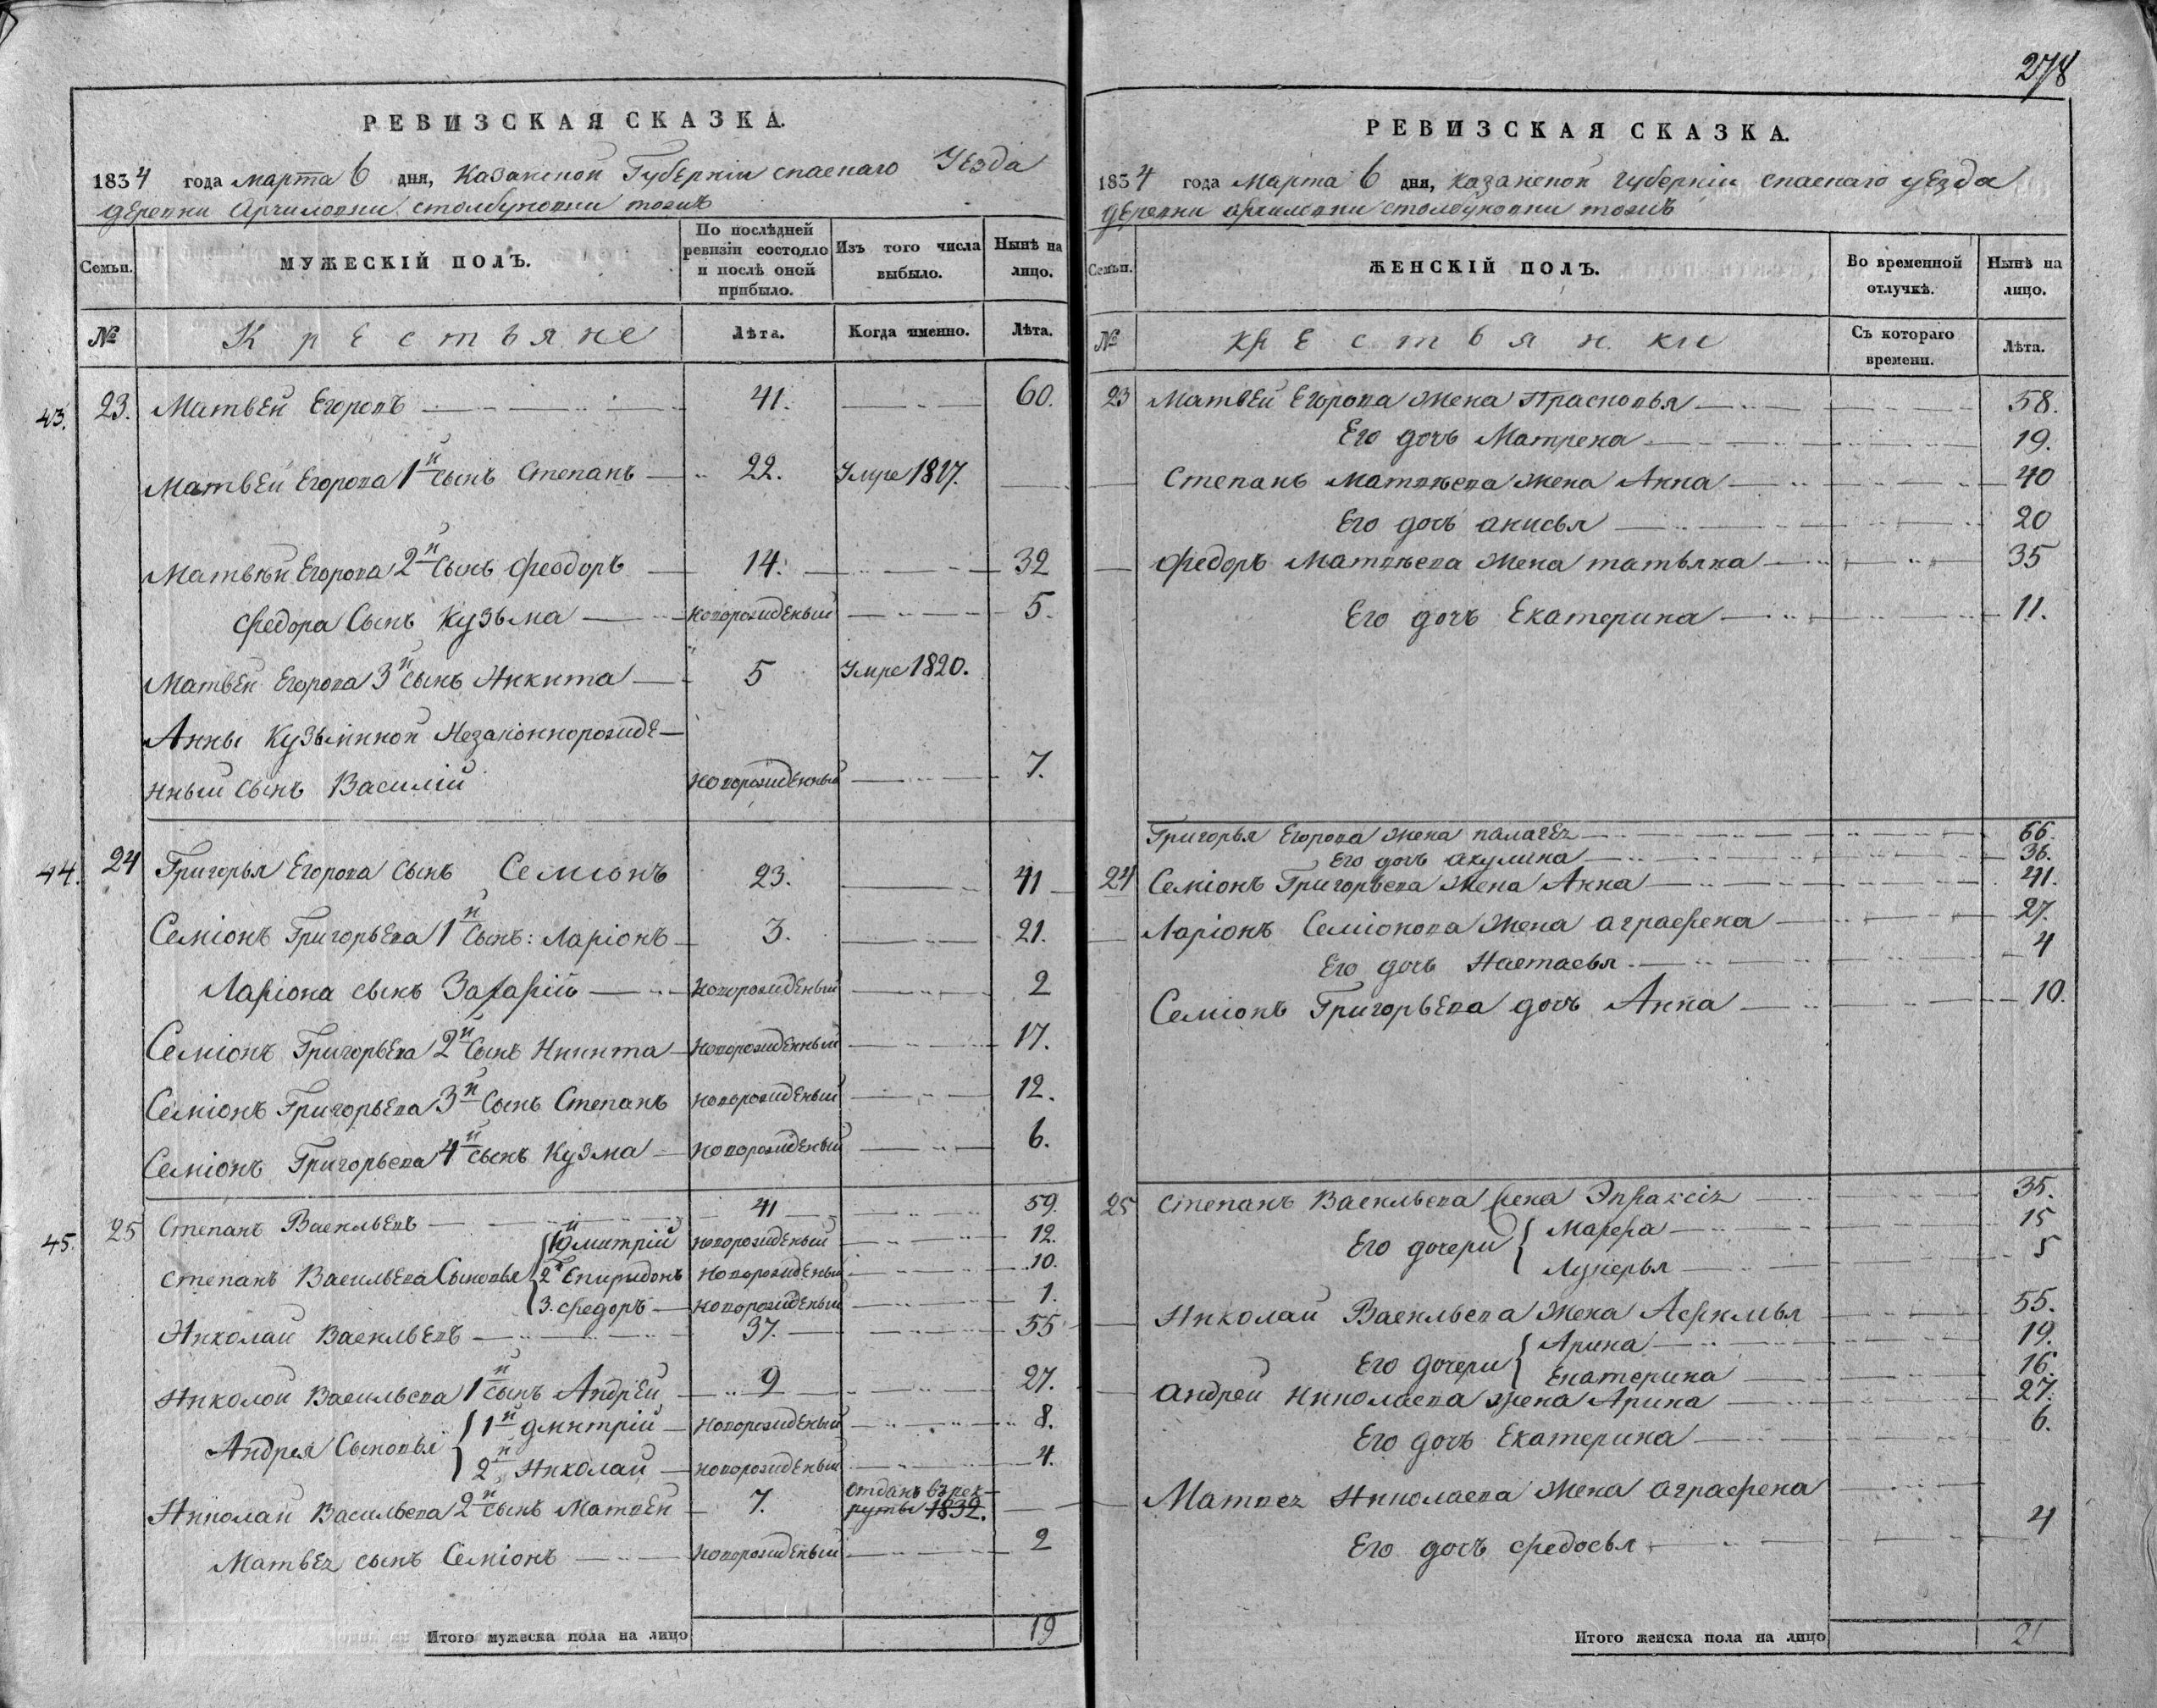 278
РЕВИЗСКАЯ СКАЗКА.
1834 года марта 6 дня, Казанской Губерніи спаскаго Уезда
деревни Арчиловки столбуновки тожъ
Семьи. МУЖЕСКІЙ ПОЛЪ. По послѣдней ревизіи состояло и послѣ оной прибыло. Изъ того числа выбыло. Нынѣ на лицо.
№ Крестьяне Лѣта. Когда именно. Лѣта.
43. 23. Матвей Егоровъ 41. 60.
Матвей Егорова 1й сынъ Степанъ 22. Умре 1817.
Матвѣй Егорова 2й сынъ Феодоръ 14. 32
Федора Сынъ Кузьма новорожденый 5.
Матвей Егорова 3й сынъ Никита 5 Умре 1820.
Анны Кузьминной Незаконнорожде-
нный сынъ Василій новорожденный 7.
44. 24 Григорья Егорова сынъ Семіонъ 23. 41
Семіонъ Григорьева 1й сынъ: Ларіонъ 3. 21.
Ларіона сынъ Захарій новорожденый 2
Семіонъ Григорьева 2й сынъ Никита новорожденный 17.
Семіонъ Григорьева 3й сынъ Степанъ новорожденый 12.
Семіонъ Григорьева 4й сынъ Кузма новорожденый 6.
45. 25 Степанъ Васильевъ 41 59.
1й Дмитрій новорожденый 12.
Степанъ Васильева Сыновья 2й Спиридонъ новорожденый 10.
3. Федоръ новорожденый 1.
Николай Васильевъ 37. 55
Николой Васильева 1й сынъ Андрей 9 27.
Андрея Сыновья 1й Дмитрій новорожденый 8.
2й Николай новорожденый 4.
Николай Васильева 2й сынъ Матвей 7. отданъ въ рек-
руты 1832.
Матвея сынъ Семіонъ новорожденый 2
Итого мужеска пола на лицо 19
РЕВИЗСКАЯ СКАЗКА.
1834 года Марта 6 дня, казанской губерніи спаскаго уезда
деревни арчиловки столбуновки тожъ
Семьи. ЖЕНСКІЙ ПОЛЪ. Во временной отлучкѣ. Нынѣ на лицо.
№ крестьянки Съ котораго времени. Лѣта.
23 Матвей Егорова жена Прасковья 58.
Его дочь Матрена 19.
Степанъ Матвѣева жена Анна 40
Его дочь анисья 20
Федоръ Матвѣева жена татьяна 35
Его дочъ Екатерина 11.
Григорья Егорова жена палагея 66.
Его дочь акулина 36.
24 Семіонъ Григорьева жена Анна 41.
Ларіонъ Семіонова жена аграфена 27.
Его дочь Настасья 4
Семіонъ Григорьева дочь Анна 10.
25 Степанъ Васильева жена 35.
Его дочери Марфа 15
Лукерья 5
Николай Васильева жена Афимья 55.
Его дочери Арина 19.
Екатерина 16.
андрей николаева жена Арина 27.
Его дочь Екатерина 6.
Матвея Николаева жена аграфена
Его дочъ федосья 4
Итого женска пола на лицо 21